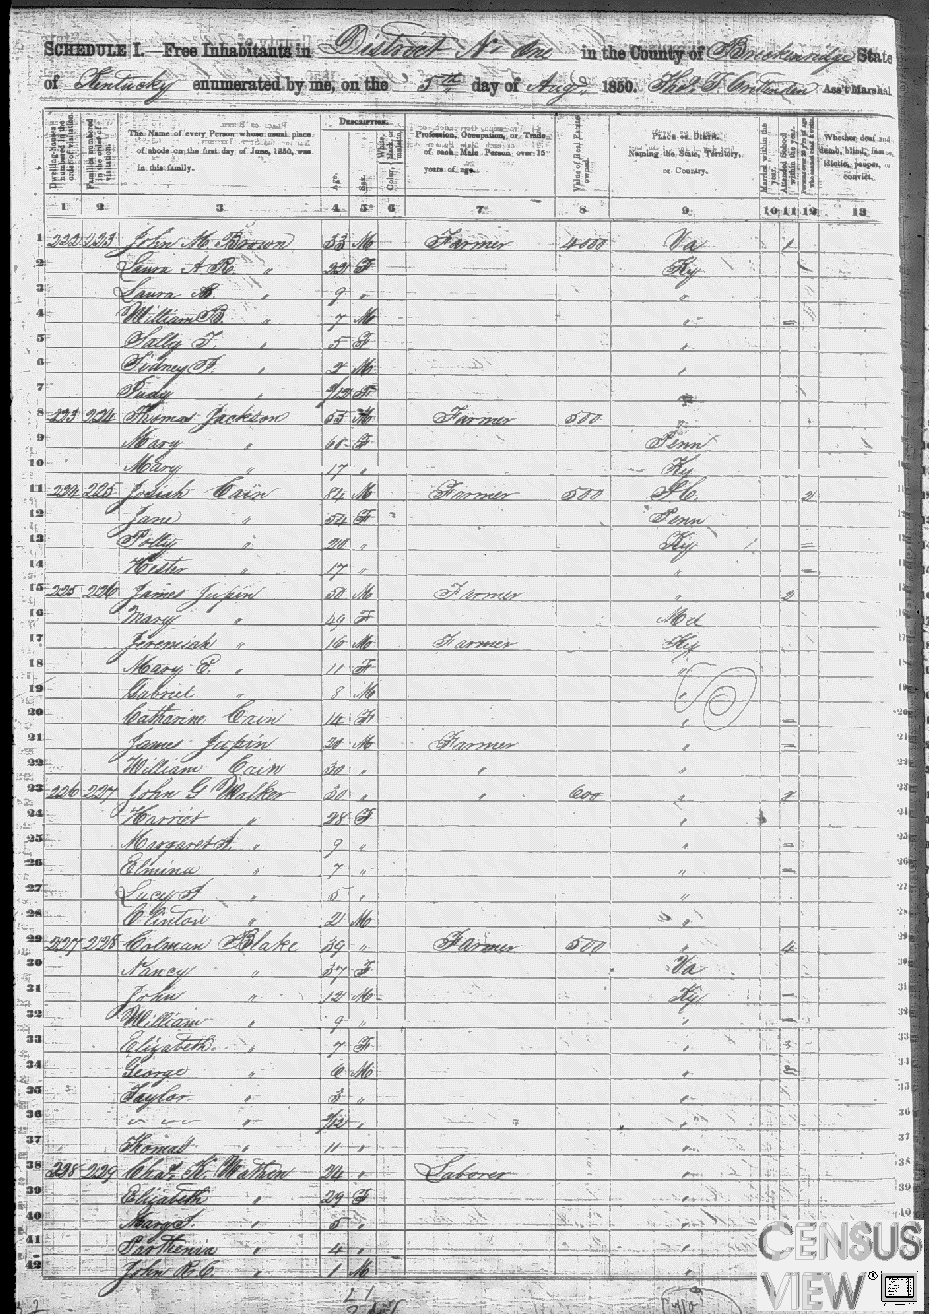 SCHEDULE I.—Free Inhabitants in District No One in the County of Breckenridge State
of Kentucky enumerated by me, on the 5th day of Aug 1850. Thos. T. Crittenden Ass't Marshal
Dwelling-houses numbered in the order of visitation.
Families numbered in the order of visitation.
The Name of every Person whose usual place of abode on the first day of June, 1850, was in this family.
DESCRIPTION.
Age.
Sex.
Color, White, black, or mulatto.
Profession, Occupation, or Trade of each Male Person over 15 years of age.
Value of Real Estate owned.
PLACE OF BIRTH. Naming the State, Territory, or Country.
Married within the year.
Attended School within the year.
Whether deaf and dumb, blind, insane, idiotic, pauper, or convict.
1 2 3 4 5 6 7 8 9 10 11 12 13
1 222 223 John M Brown 33 M Farmer 4000 Va 1
2 Laura A R. " 22 F Ky
3 Laura " 9 " "
4 William B " 7 M "
5 Sally T. " 5 F "
6 Sidney F. " 2 M "
7 Judy " F
8 223 224 Thomas Jackson 55 M Farmer 500 "
9 Mary " 60 F Penn
10 Mary " 17 " Ky
11 224 225 Josiah Cain 84 M Farmer 500 2
12 Jane " 54 F Penn
13 Polly " 20 " Ky
14 Hester " 17 " "
15 225 226 James Jupin 50 M Farmer " 2
16 Mary " 49 F Md
17 Jeremiah " 16 M Farmer Ky
18 Mary E. " 11 F "
19 Gabriel " 8 M "
20 Catharine Cain 14 F "
21 James Jupin 20 M Farmer "
22 William Cain 30 " " "
23 226 227 John G Walker 30 " " 600 "
24 Harriet " 28 F "
25 Margaret A. " 9 " "
26 Elmina " 7 " "
27 Lucy A " 5 " "
28 Clinton " 2 M "
29 227 228 Colman Blake 39 " Farmer 500 " 4
30 Nancy " 37 F Va
31 John " 12 M Ky
32 William " 9 " "
33 Elizabeth " 7 F "
34 George " 6 M "
35 Taylor " 3 " "
36 " 2/12 " "
37 Thomas " 11 " "
38 228 229 Chas. K. Watkin 24 " Laborer "
39 Elizabeth " 29 F "
40 Mary S. " 5 " "
41 Parthenia " 4 " "
42 John R. C. " 1 M "
CENSUS
VIEW®